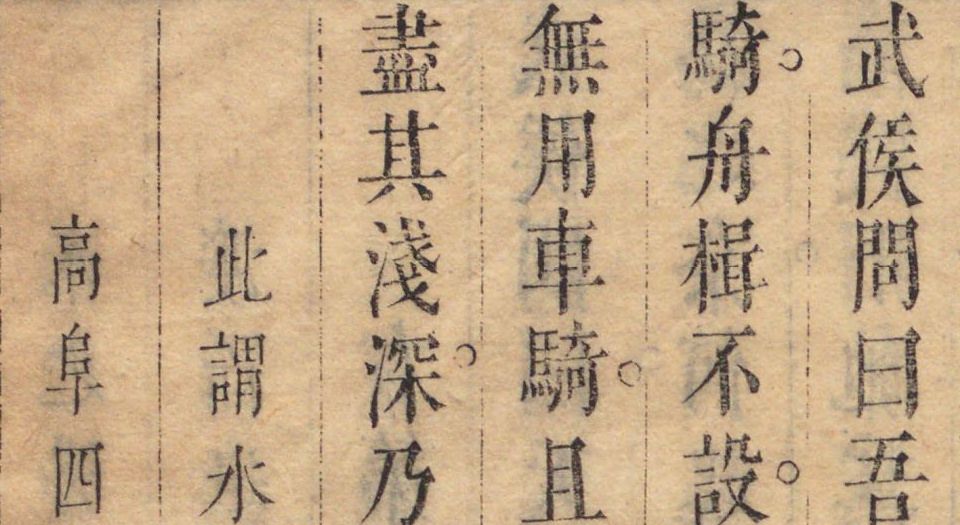 武侯問曰吾
騎。舟楫不設。
無用車騎。且
盡其淺深。乃
此謂水
高阜四